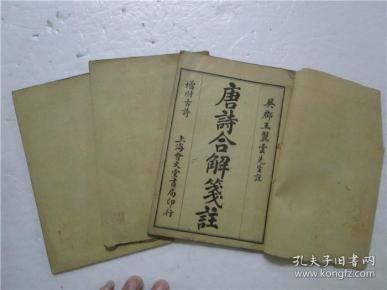 吳郷王翼雲先生註
唐詩合解箋註
增附古詩
上海會文堂書局印行
孔夫子旧书网